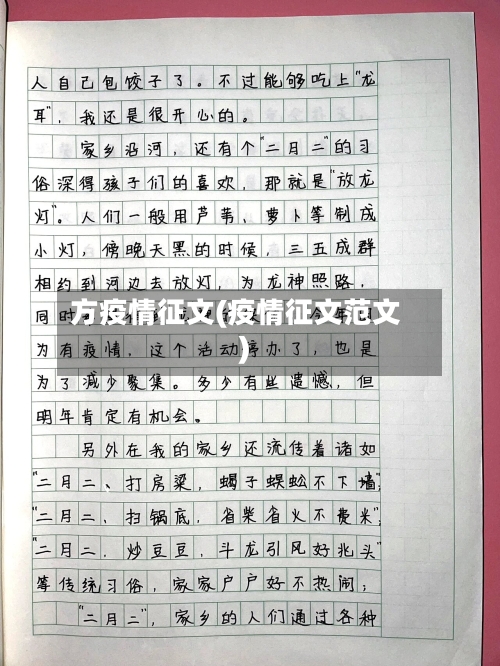 人自己包饺子了。不过能够吃上"龙
耳"，我还是很开心的。
家乡沿河，还有个"二月二"的习
俗深得孩子们的喜欢，那就是"放龙
灯"。人们一般用芦苇、萝卜等制成
小灯，傍晚天黑的时候，三五成群
相约到河边去放灯，为龙神照路，
方疫情征文(疫情征文范文
)
同时
为有疫情，这个活动停办了，也是
为了减少聚集。多少有些遗憾，但
明年肯定有机会。
另外在我的家乡还流传着诸如
"二月二、打房梁，蝎子蜈蚣不下墙"；
"二月二、扫锅底，省柴省火不费米"；
"二月二．炒豆豆，斗龙引风好兆头"
等传统习俗，家家户户好不热闹；
"二月二"，家乡的人们通过各种